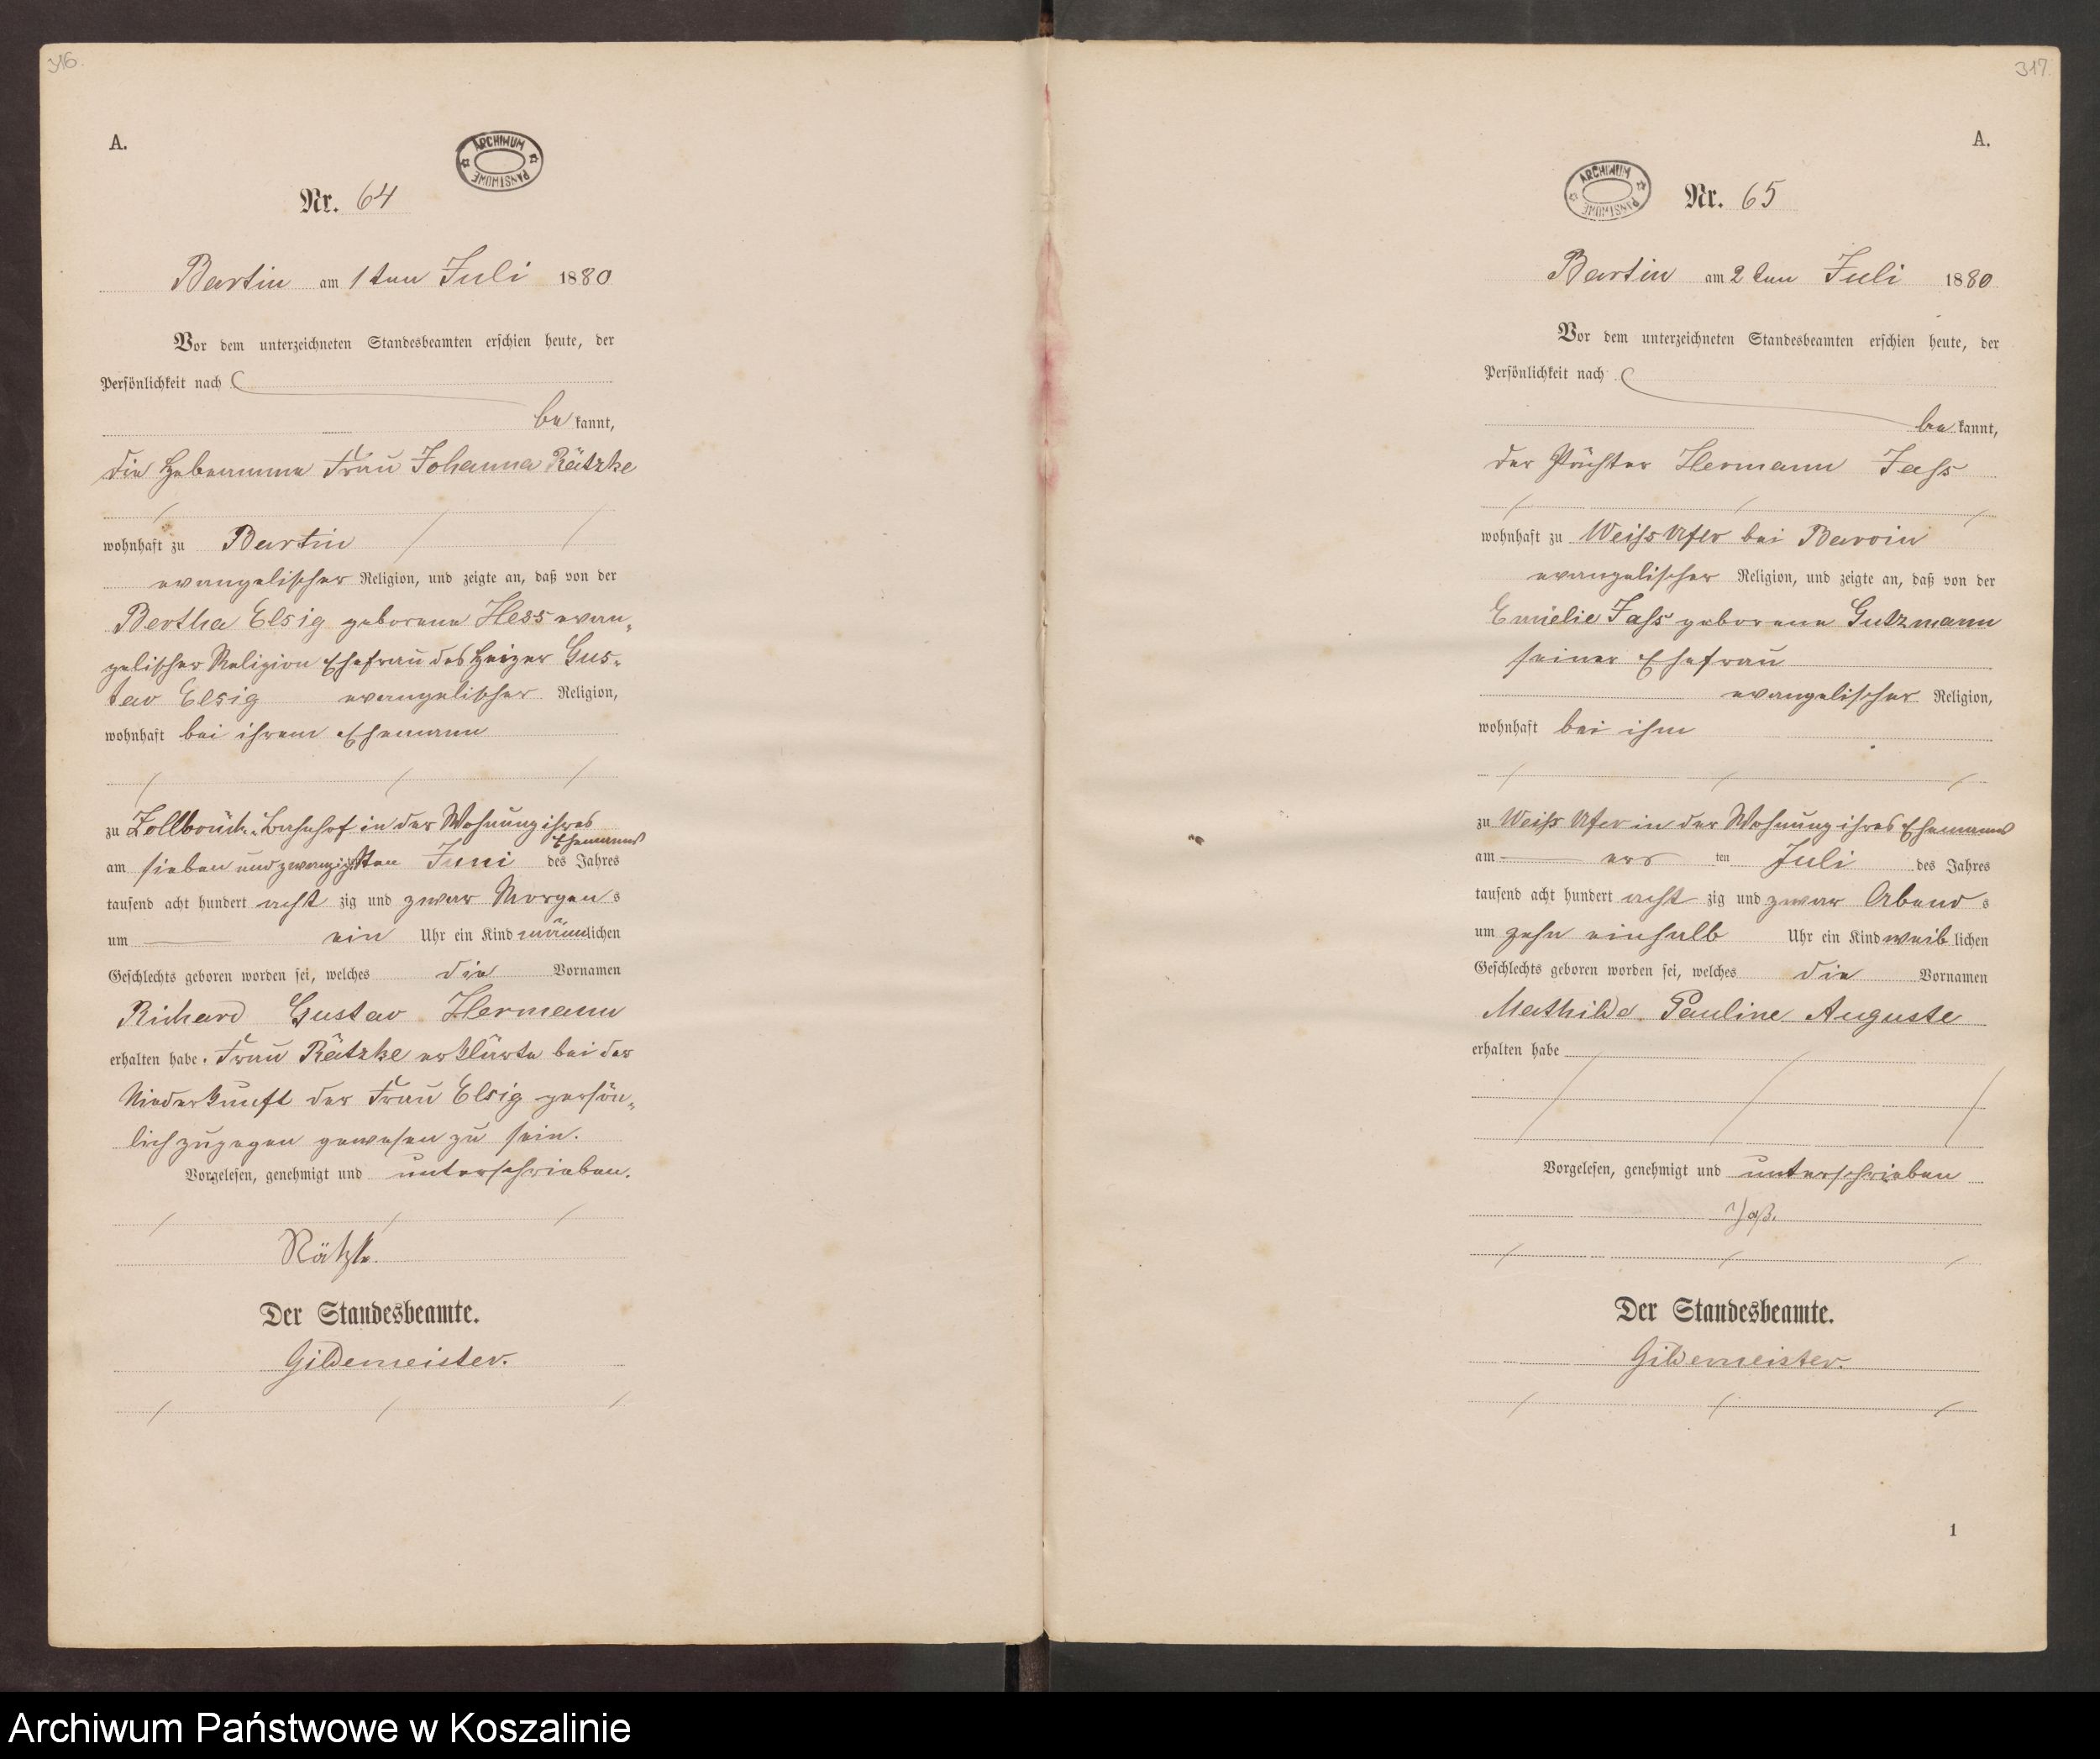 316.
A.
ARCHIWUM PAŃSTWOWE
Nr. 64
Bartin am 1ten Juli 1880
Vor dem unterzeichneten Standesbeamten erschien heute, der
Persönlichkeit nach
be kannt,
die Hebeamme Frau Johanna Rätzke
wohnhaft zu Bartin
evangelischer Religion, und zeigte an, daß von der
Bertha Elsig geborene Hess evan-
gelischer Religion Ehefrau des Heizer Gus-
tav Elsig evangelischer Religion,
wohnhaft bei ihrem Ehemann
zu Zollbrück-Bahnhof in der Wohnung ihres
Ehemanns
am sieben und zwanzigsten Juni des Jahres
tausend acht hundert acht zig und zwar Morgens
um ein Uhr ein Kind männlichen
Geschlechts geboren worden sei, welches die Vornamen
Richard Gustav Hermann
erhalten habe. Frau Rätzke erklärte bei der
Niederkunft der Frau Elsig persön-
lich zugegen gewesen zu sein.
Vorgelesen, genehmigt und unterschrieben.
Rätzke.
Der Standesbeamte.
Gildemeister.
317.
A.
ARCHIWUM PAŃSTWOWE
Nr. 65
Bartin am 2ten Juli 1880
Vor dem unterzeichneten Standesbeamten erschien heute, der
Persönlichkeit nach
be kannt,
der Pächter Hermann Jahs
wohnhaft zu Weiss Ufer bei Barvin
evangelischer Religion, und zeigte an, daß von der
Emielie Jahs geborene Gutzmann
seiner Ehefrau
evangelischer Religion,
wohnhaft bei ihm
zu Weiss Ufer in der Wohnung ihres Ehemanns
am ers ten Juli des Jahres
tausend acht hundert acht zig und zwar Abends
um zehn einhalb Uhr ein Kind weib lichen
Geschlechts geboren worden sei, welches die Vornamen
Mathilde Pauline Auguste
erhalten habe
Vorgelesen, genehmigt und unterschrieben
Jaß.
Der Standesbeamte.
Gildemeister.
1
Archiwum Państwowe w Koszalinie